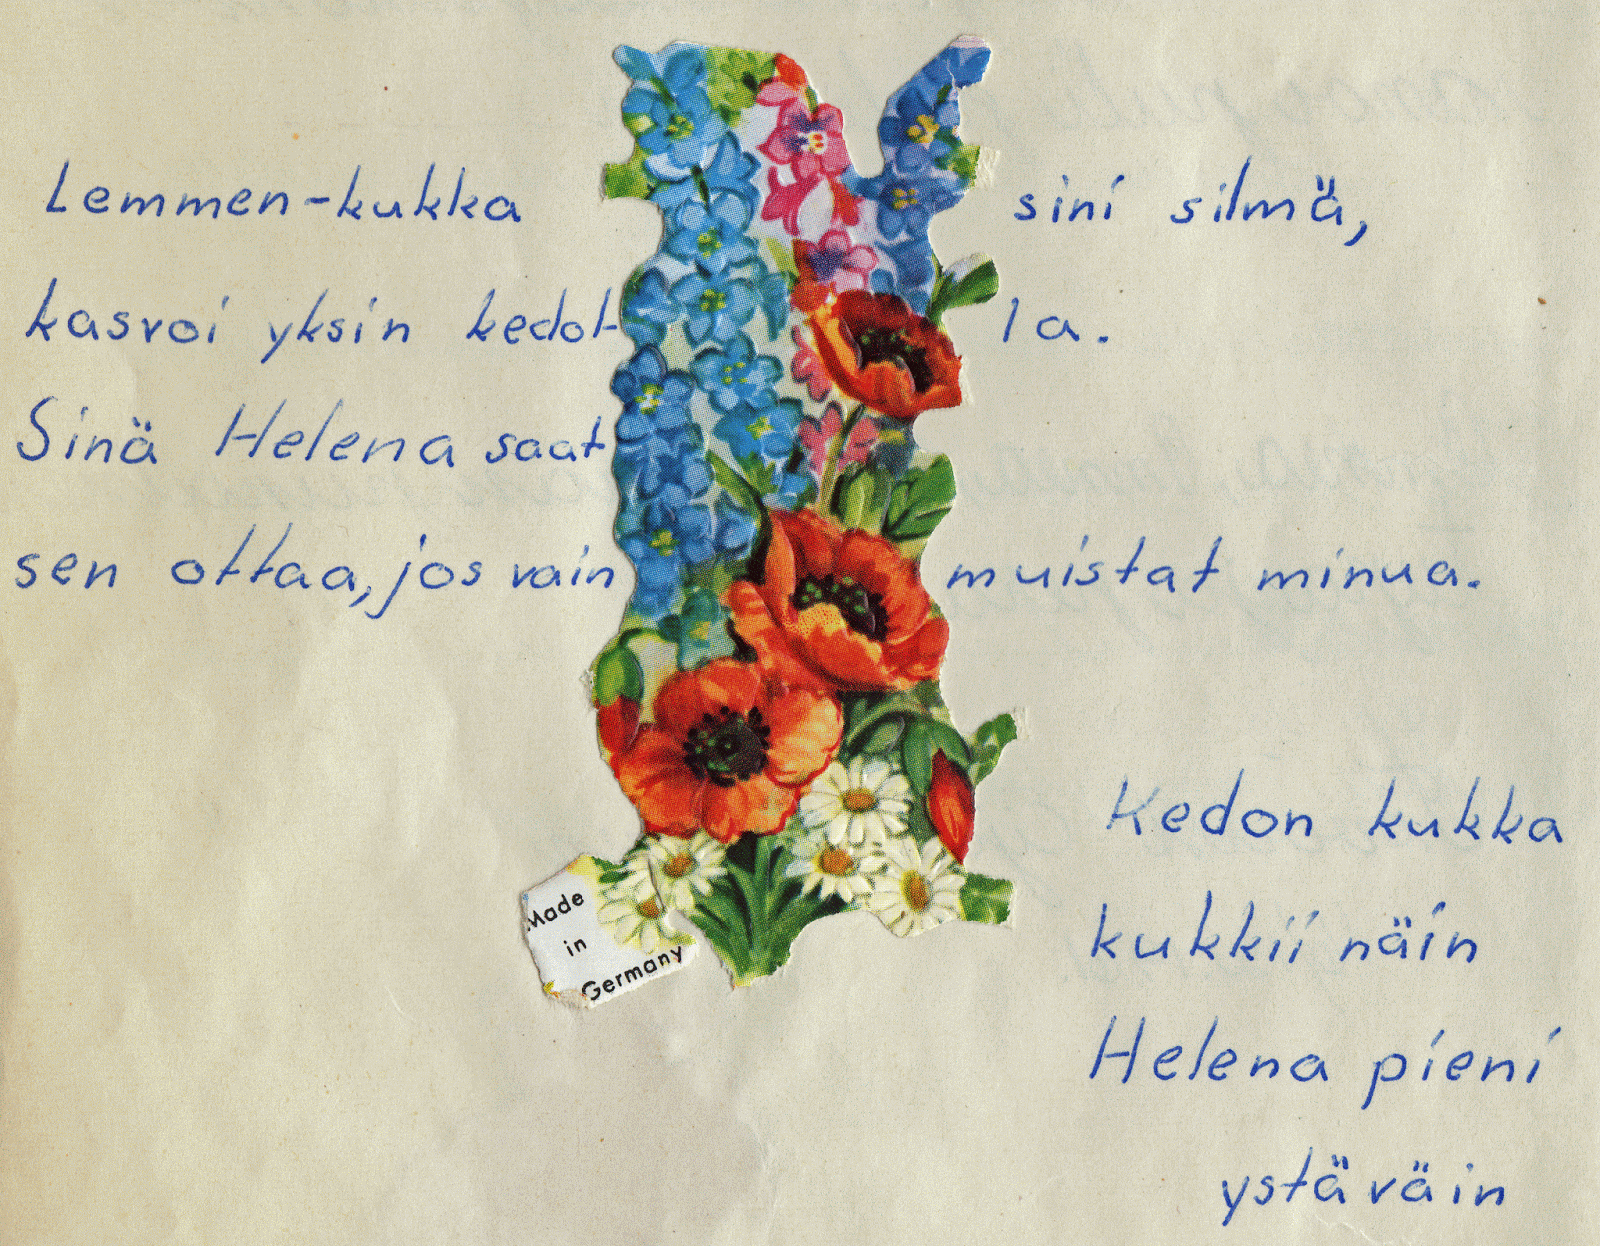 Lemmen-kukka sini silmä,
kasvoi yksin kedol-la.
Sinä Helena saat
sen ottaa, jos vain muistat minua.
Kedon kukka
kukkii näin
Helena pieni
ystäväin
Made
in
Germany